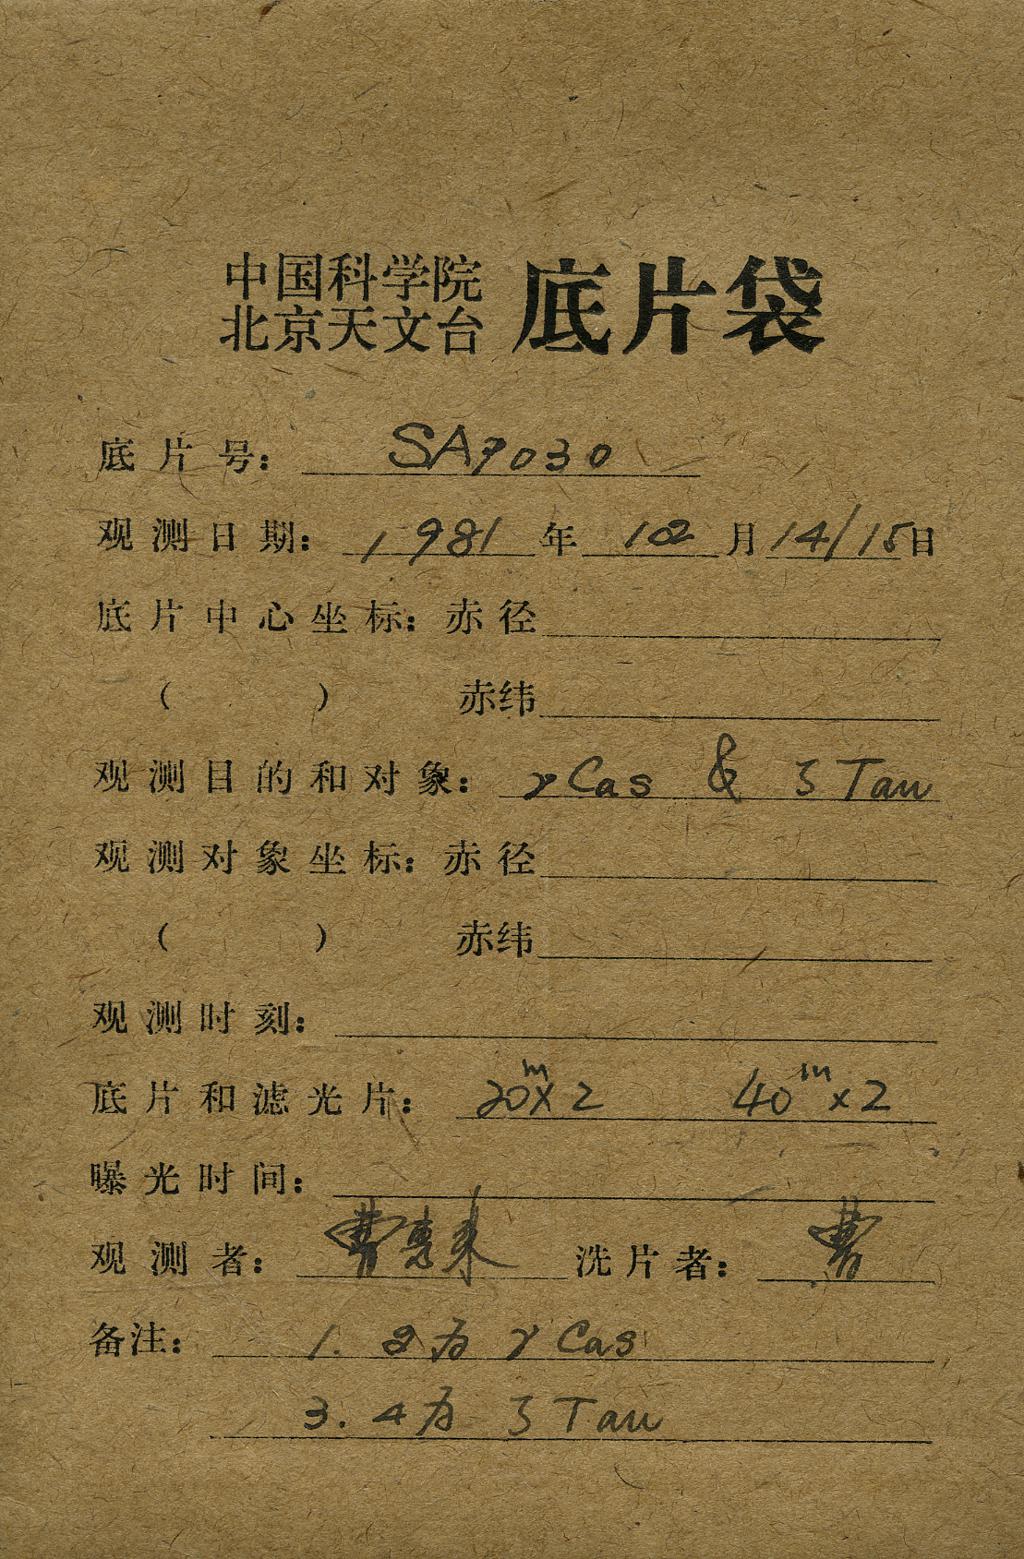 中国科学院
北京天文台 底片袋
底片号: SA7030
观测日期: 1981年 12月14/15日
底片中心坐标: 赤径
( ) 赤纬
观测目的和对象: γ Cas & ζ Tau
观测对象坐标: 赤径
( ) 赤纬
观测时刻:
底片和滤光片: 20ᵐ×2 40ᵐ×2
曝光时间:
观测者: 曹惠来 洗片者: 曹
备注: 1. 2为 γ Cas
3. 4为 ζ Tau